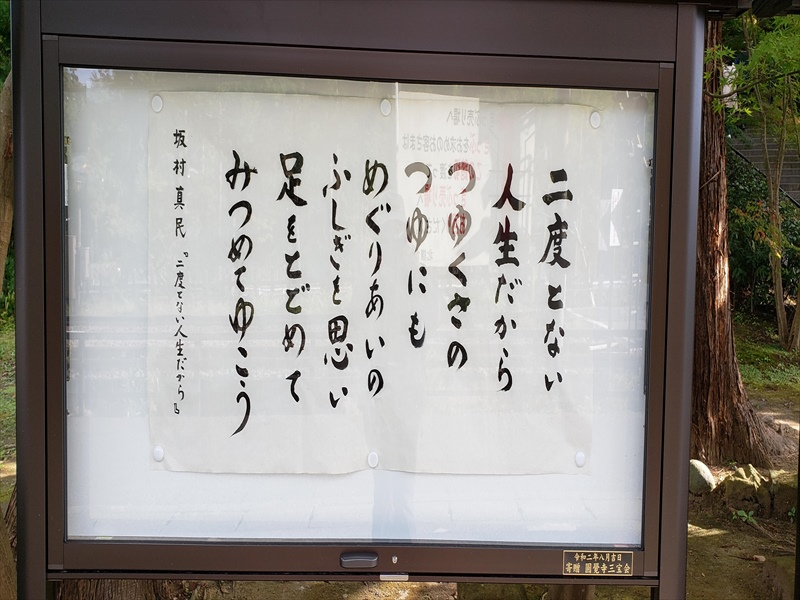 二度とない
人生だから
つゆくさの
つゆにも
めぐりあいの
ふしぎを思い
足をとどめて
みつめてゆこう
坂村真民『二度とない人生だから』
令和二年八月吉日
寄贈 圓覺寺三宝会